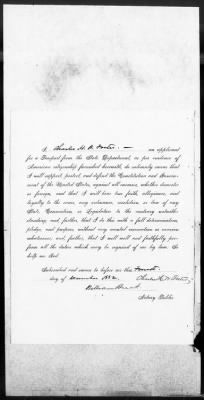 I, Charles H. W. Foster, — an applicant
for a Passport from the State Department, as per evidence of
American citizenship furnished herewith, do solemnly swear that
I will support, protect, and defend the Constitution and Govern-
ment of the United States, against all enemies, whether domestic
or foreign, and that I will bear true faith, allegiance, and
loyalty to the same, any ordinance, resolution, or law of any
State, Convention, or Legislature to the contrary notwith-
standing; and further, that I do this with a full determination,
pledge, and purpose, without any mental reservation or evasion
whatsoever; and further, that I will well and faithfully per-
form all the duties which may be required of me by law. So
help me God.
Subscribed and sworn to before me this
day of 1882.
Charles H. W. Foster
William
Notary Public